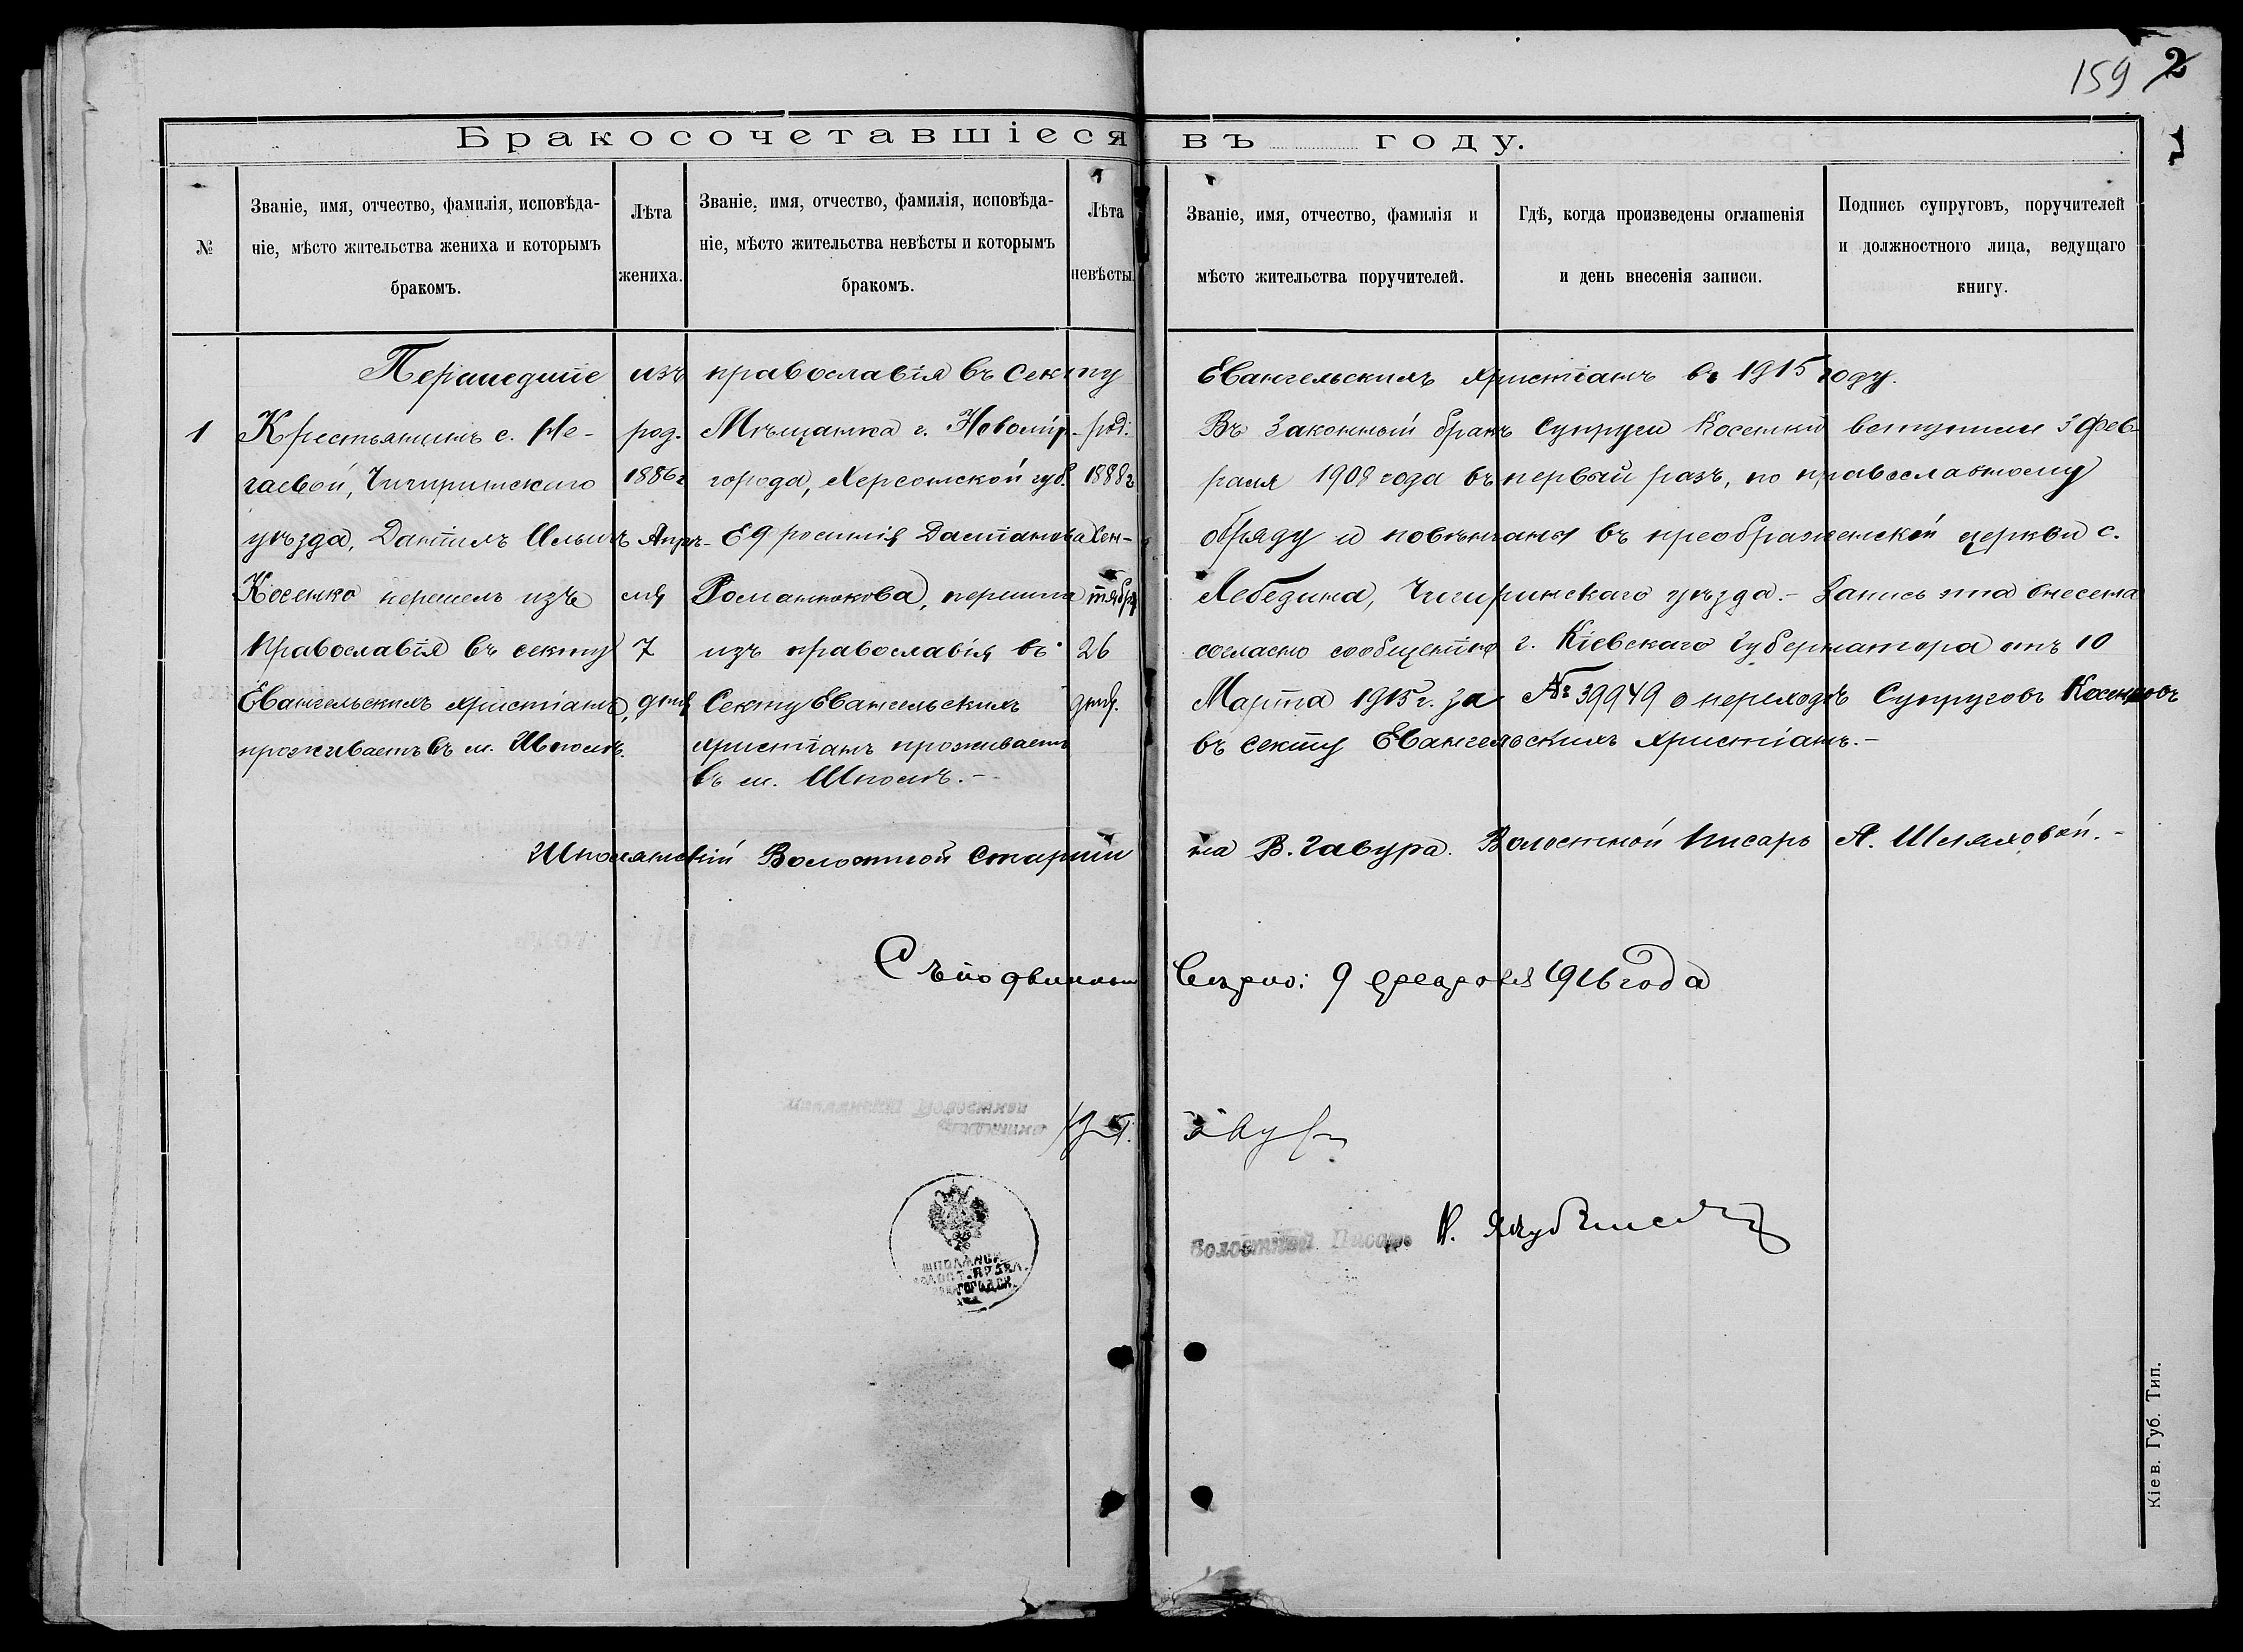 159 2
Бракосочетавшіеся въ году.
№
Званіе, имя, отчество, фамилія, исповѣда-
ніе, мѣсто жительства жениха и которымъ
бракомъ.
Лѣта
жениха.
Званіе, имя, отчество, фамилія, исповѣда-
ніе, мѣсто жительства невѣсты и которымъ
бракомъ.
Лѣта
невѣсты.
Званіе, имя, отчество, фамилія и
мѣсто жительства поручителей.
Гдѣ, когда произведены оглашенія
и день внесенія записи.
Подпись супруговъ, поручителей
и должностного лица, ведущаго
книгу.
Перешедшіе изъ православія въ секту Евангельскихъ христіанъ въ 1915 году.
1
Крестьянинъ с. Не-
гаевой, Чигиринскаго
уѣзда, Даніилъ Ильичъ
Косенко перешелъ изъ
Православія въ секту
Евангельскихъ христіанъ,
проживаетъ въ м. Шполѣ.
род.
1886 г
Апрѣ-
ля
7
дня
Мѣщанка г. Новомир-
города, Херсонской губ.
Романюкова, перешла
изъ православія въ
Секту Евангельскихъ
христіанъ проживаетъ
въ м. Шполѣ.-
род.
1888 г
Сен-
тября
26
дня.
Въ Законный бракъ Супруги Косенки вступили 3 Фев-
раля 1908 года въ первый разъ, по православному
обряду и повѣнчаны въ преображенской церкви с.
Лебедина, Чигиринскаго уѣзда.- Запись эта внесена
согласно сообщенію г. Кіевскаго Губернатора отъ 10
Марта 1915 г. за № 39949 о переходѣ Супруговъ Косенковъ
въ секту Евангельскихъ христіанъ.-
Шполянскій Волостной Старшина В. Гавура. Волостной Писарь А. Шляховой.-
Съ подлиннымъ вѣрно: 9 февраля 1916 года
Шполянскій Волостной
Старшина
Волостной Писарь
ШПОЛЯНСК.
ВОЛОСТ. ПРАВЛ.
Кіев. Губ. Тип.